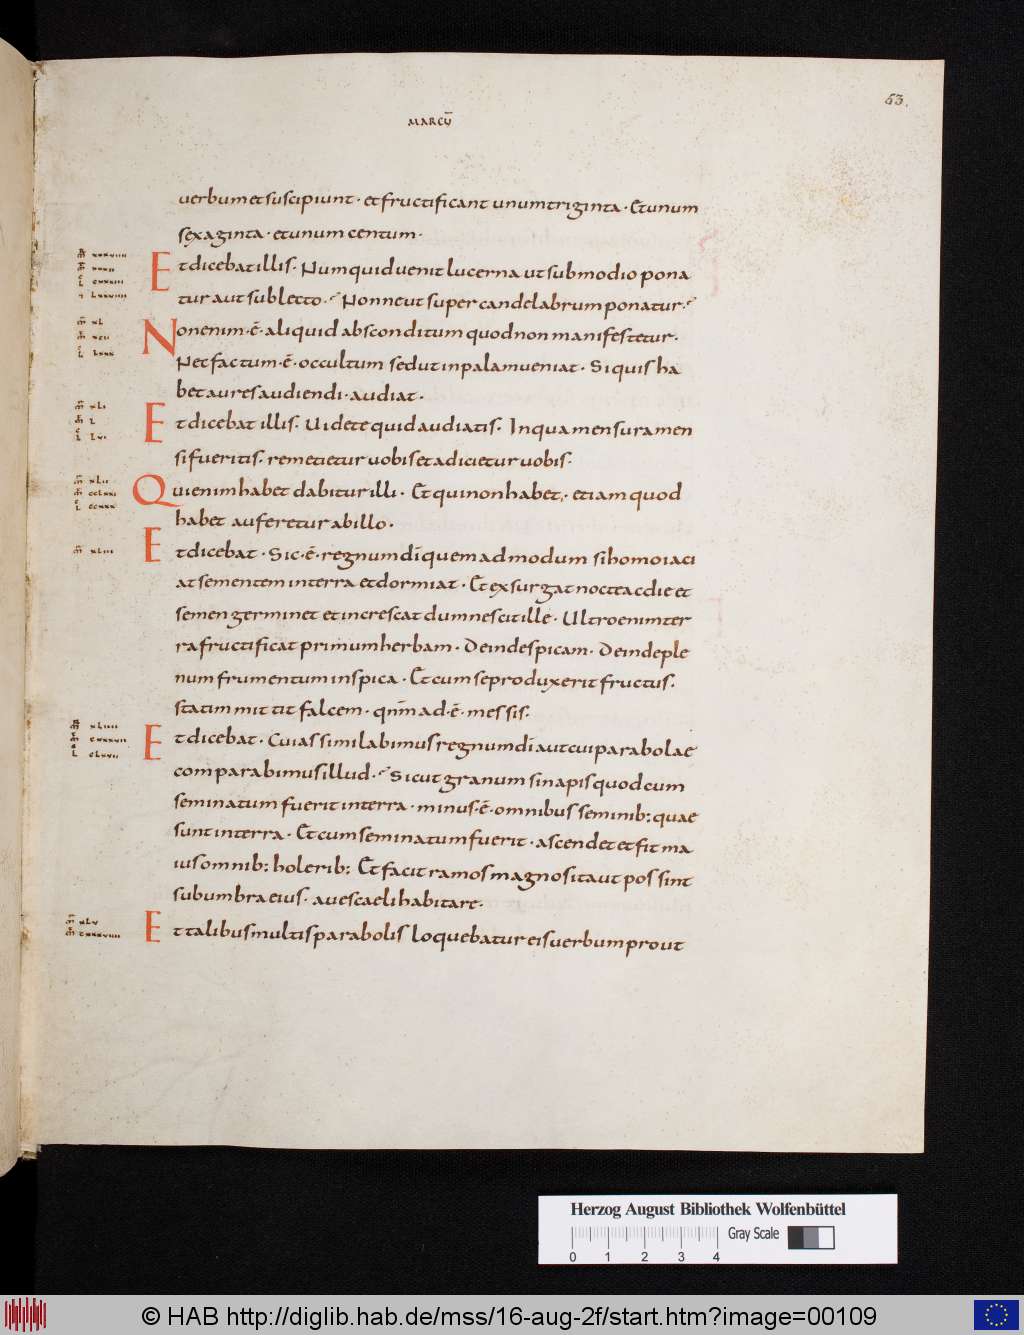 53.
MARCŪ
uerbum et suscipiunt · et fructificant unum triginta · Et unum
sexaginta · et unum centum ·
Et dicebat illis · Numquid uenit lucerna ut sub modio pona
tur aut sub lecto · Nonne ut super candelabrum ponatur ·
Non enim · ē · aliquid absconditum quod non manifestetur ·
Nec factum · ē · occultum sed ut in palam ueniat · Si quis ha
bet aures audiendi · audiat ·
Et dicebat illis · Uidete quid audiatis · In qua mensura men
si fueritis · remetietur uobis et adicietur uobis ·
Qui enim habet dabitur illi · Et qui non habet · etiam quod
habet auferetur ab illo ·
Et dicebat · Sic · ē · regnum dī quemadmodum si homo iaci
at sementem in terra et dormiat · Et exsurgat nocte ac die et
semen germinet et increscat dum nescit ille · Ultro enim ter
ra fructificat primum herbam · Deinde spicam · Deinde ple
num frumentum in spica · Et cum se produxerit fructus ·
statim mittit falcem · qnm̄ ad · ē · messis ·
Et dicebat · Cui assimilabimus regnum dī aut cui parabolae
comparabimus illud · Sicut granum sinapis quod cum
seminatum fuerit in terra · minus · ē · omnibus seminib: quae
sunt in terra · Et cum seminatum fuerit · ascendet et fit ma
ius omnib: holerib: Et facit ramos magnos ita ut possint
sub umbra eius · aues caeli habitare ·
Et talibus multis parabolis loquebatur eis uerbum prout
Herzog August Bibliothek Wolfenbüttel
Gray Scale
0 1 2 3 4
© HAB http://diglib.hab.de/mss/16-aug-2f/start.htm?image=00109